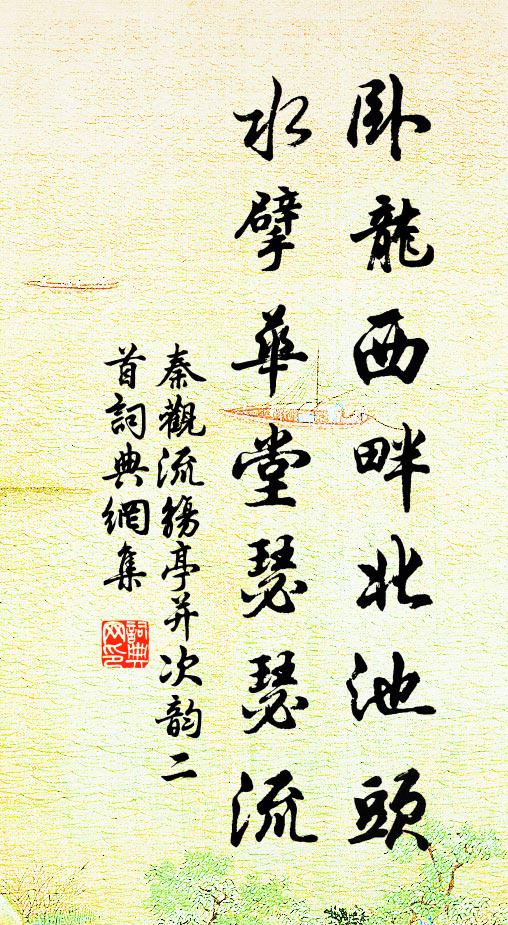 卧龍西畔北池頭
水擘華堂瑟瑟流
秦觀流觴亭并次韵二
首詞典網集
詞典
网印